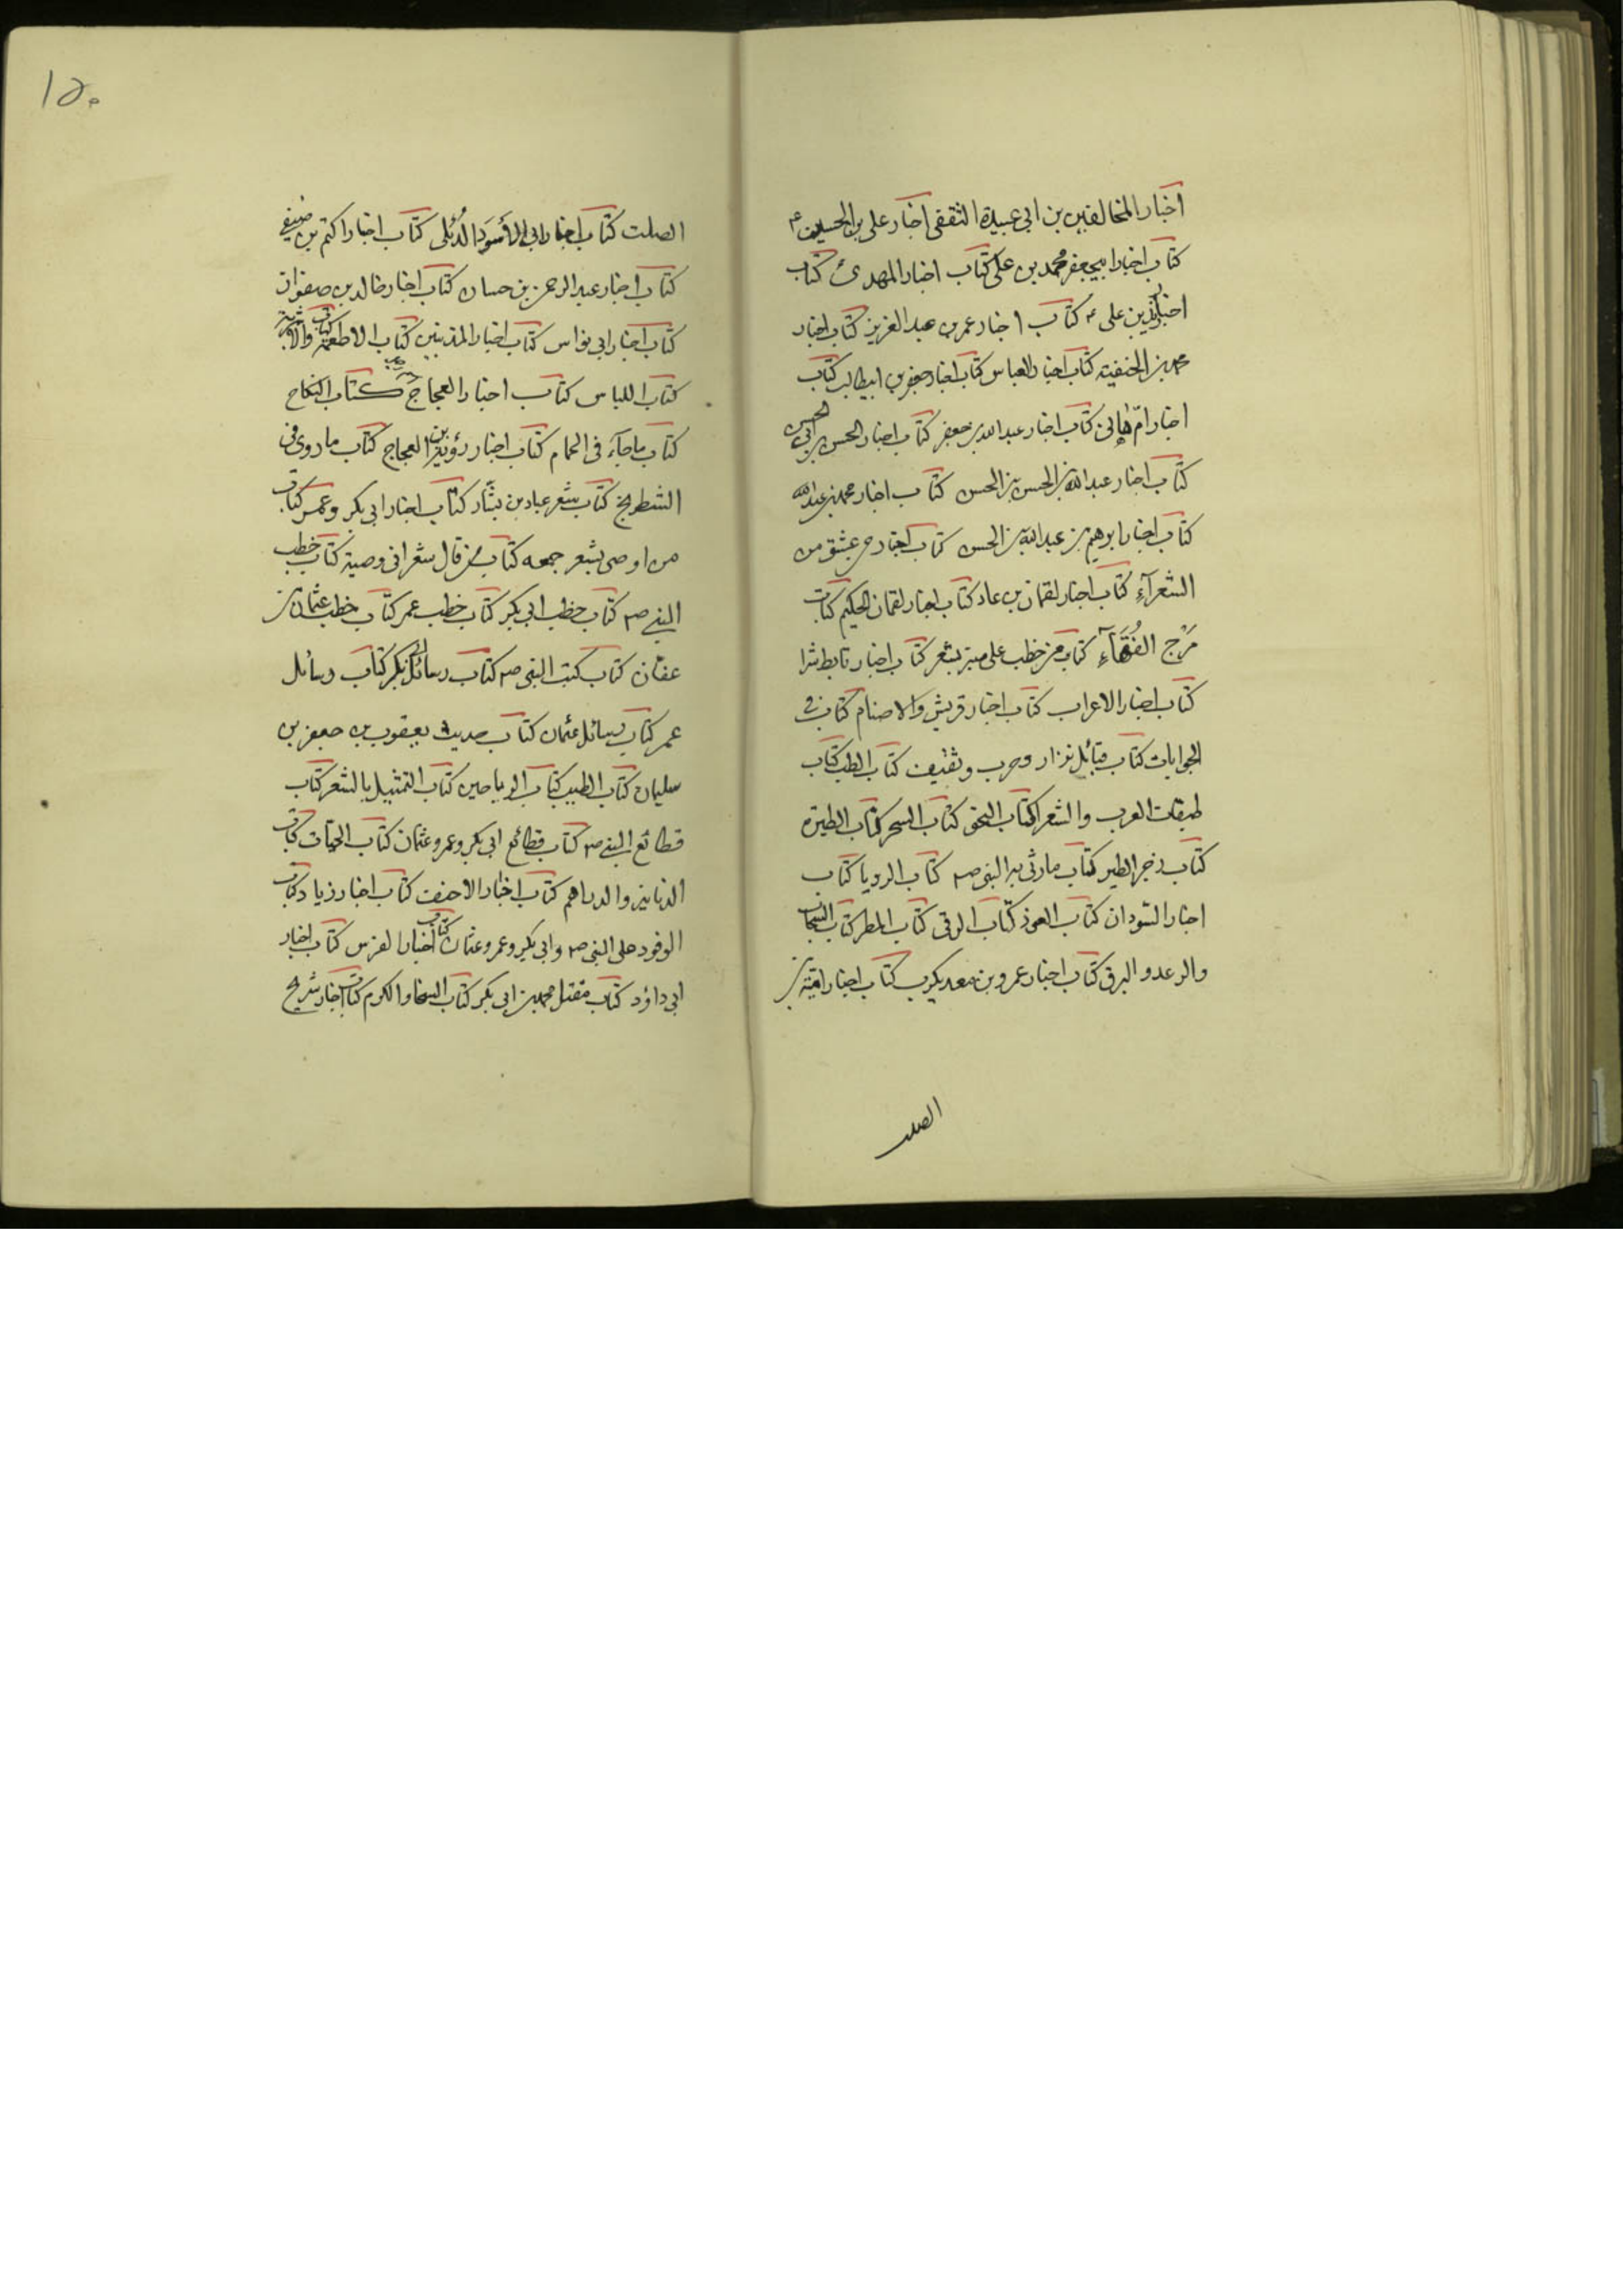 اخبار المخالفين بن ابی عبيدة الثقفی اخبار علی بن الحسين ع
كتاب اخبار ابيجعفر محمد بن علی كتاب اخبار المهدی كتاب
اخبار زيد بن علی ع كتاب اخبار عمر بن عبد العزيز كتاب اخبار
محمد بن الحنفية كتاب اخبار العباس كتاب اخبار جعفر بن ابيطالب كتاب
اخبار امّ هانی كتاب اخبار عبد الله بن جعفر كتاب اخبار الحسن بن ابی الحسن
كتاب اخبار عبد الله بن الحسن بن الحسن كتاب اخبار محمد بن عبد الله
كتاب اخبار ابرهيم بن عبد الله بن الحسن كتاب اخبار من عشق من
الشعرآءِ كتاب اخبار لقمان بن عاد كتاب اخبار لقمان الحكيم كتاب
مَرْح الفُقَهآءِ كتاب من خطب علی منبر بشعر كتاب اخبار تابط شرا
كتاب اخبار الاعراب كتاب اخبار قريش والاصنام كتاب فی
الجوابات كتاب قبائل نزار وحرب وثقيف كتاب الطب كتاب
طبقات العرب والشعرا كتاب النحو كتاب السحر كتاب الطيرة
كتاب زجر الطير كتاب مارثی به النبی ص كتاب الرويا كتاب
اخبار السودان كتاب العوذ كتاب الرقی كتاب المطر كتاب السحاب
والرعد والبرق كتاب اخبار عمرو بن معديكرب كتاب اخبار امية بن
الصلت
الصلت كتاب اخبار ابی الأَسوَد الدُئلی كتاب اخبار اكثم بن صيفی
كتاب اخبار عبد الرحمن بن حسان كتاب اخبار خالد بن صفوان
كتاب اخبار ابی نواس كتاب اخبار المذنبين كتاب الاطعمة كتاب والاشربة
كتاب اللباس كتاب اخبار العجاج كتاب النكاح
كتاب ماجآء فی الحمام كتاب اخبار رؤبة بن العجاج كتاب ماروی فی
الشطرنج كتاب شعر عباد بن بشار كتاب اخبار ابی بكر وعمر كتاب
من اوصی بشعر جمعه كتاب من قال شعرا فی وصية كتاب خطب
النبی ص كتاب خطب ابی بكر كتاب خطب عمر كتاب خطب عثمان بن
عفان كتاب كتب النبی ص كتاب رسائل ابی بكر كتاب رسائل
عمر كتاب رسائل عثمان كتاب حديث يعقوب بن جعفر بن
سليمان كتاب الطيب كتاب الرياحين كتاب التمثيل بالشعر كتاب
قطائع النبی ص كتاب قطائع ابی بكر وعمر وعثمان كتاب الحيات كتاب
الدنانير والدراهم كتاب اخبار الاحنف كتاب اخبار زياد كتاب
الوفود علی النبی ص وابی بكر وعمر وعثمان كتاب اخبار الفرس كتاب اخبار
ابی داؤد كتاب مقتل محمد بن ابی بكر كتاب السخا والكرم كتاب اخبار شريح
١٥٠